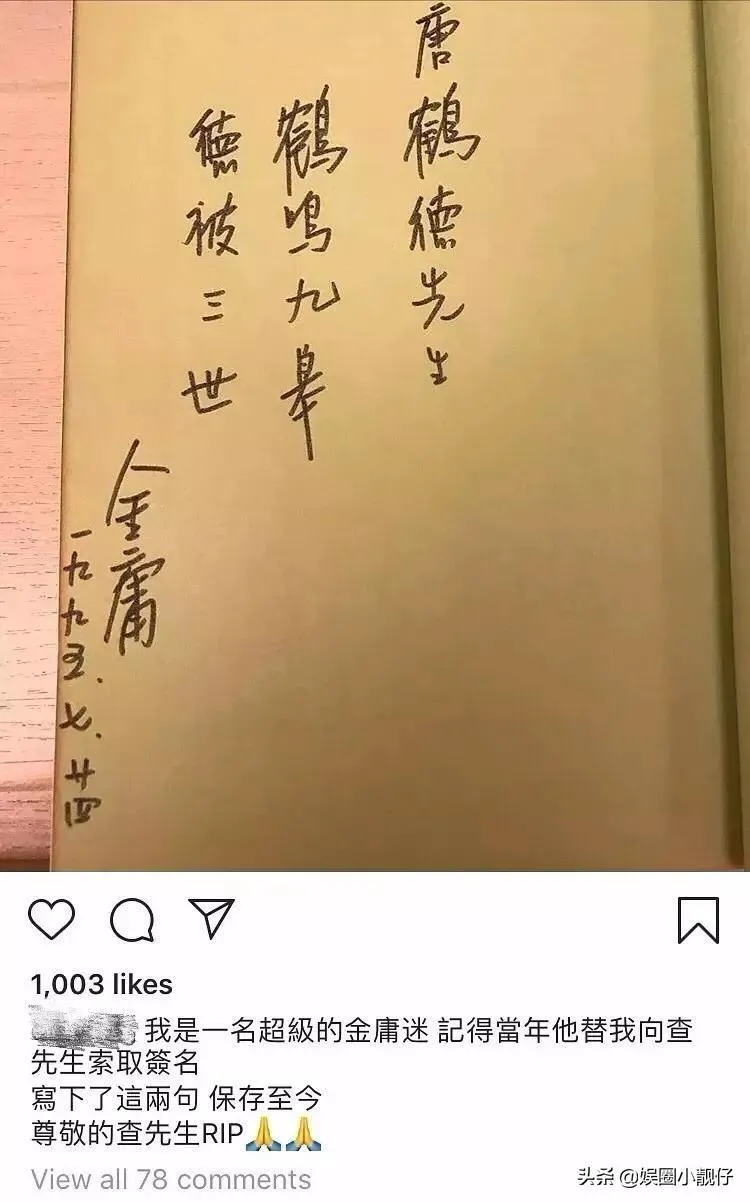 唐鶴德先生
鶴鳴九皋
德被三世
金庸
一九九五.七.廿四
1,003 likes
我是一名超級的金庸迷 記得當年他替我向查
先生索取簽名
寫下了這兩句 保存至今
尊敬的查先生RIP🙏🙏
View all 78 comments
头条 @娱圈小靓仔